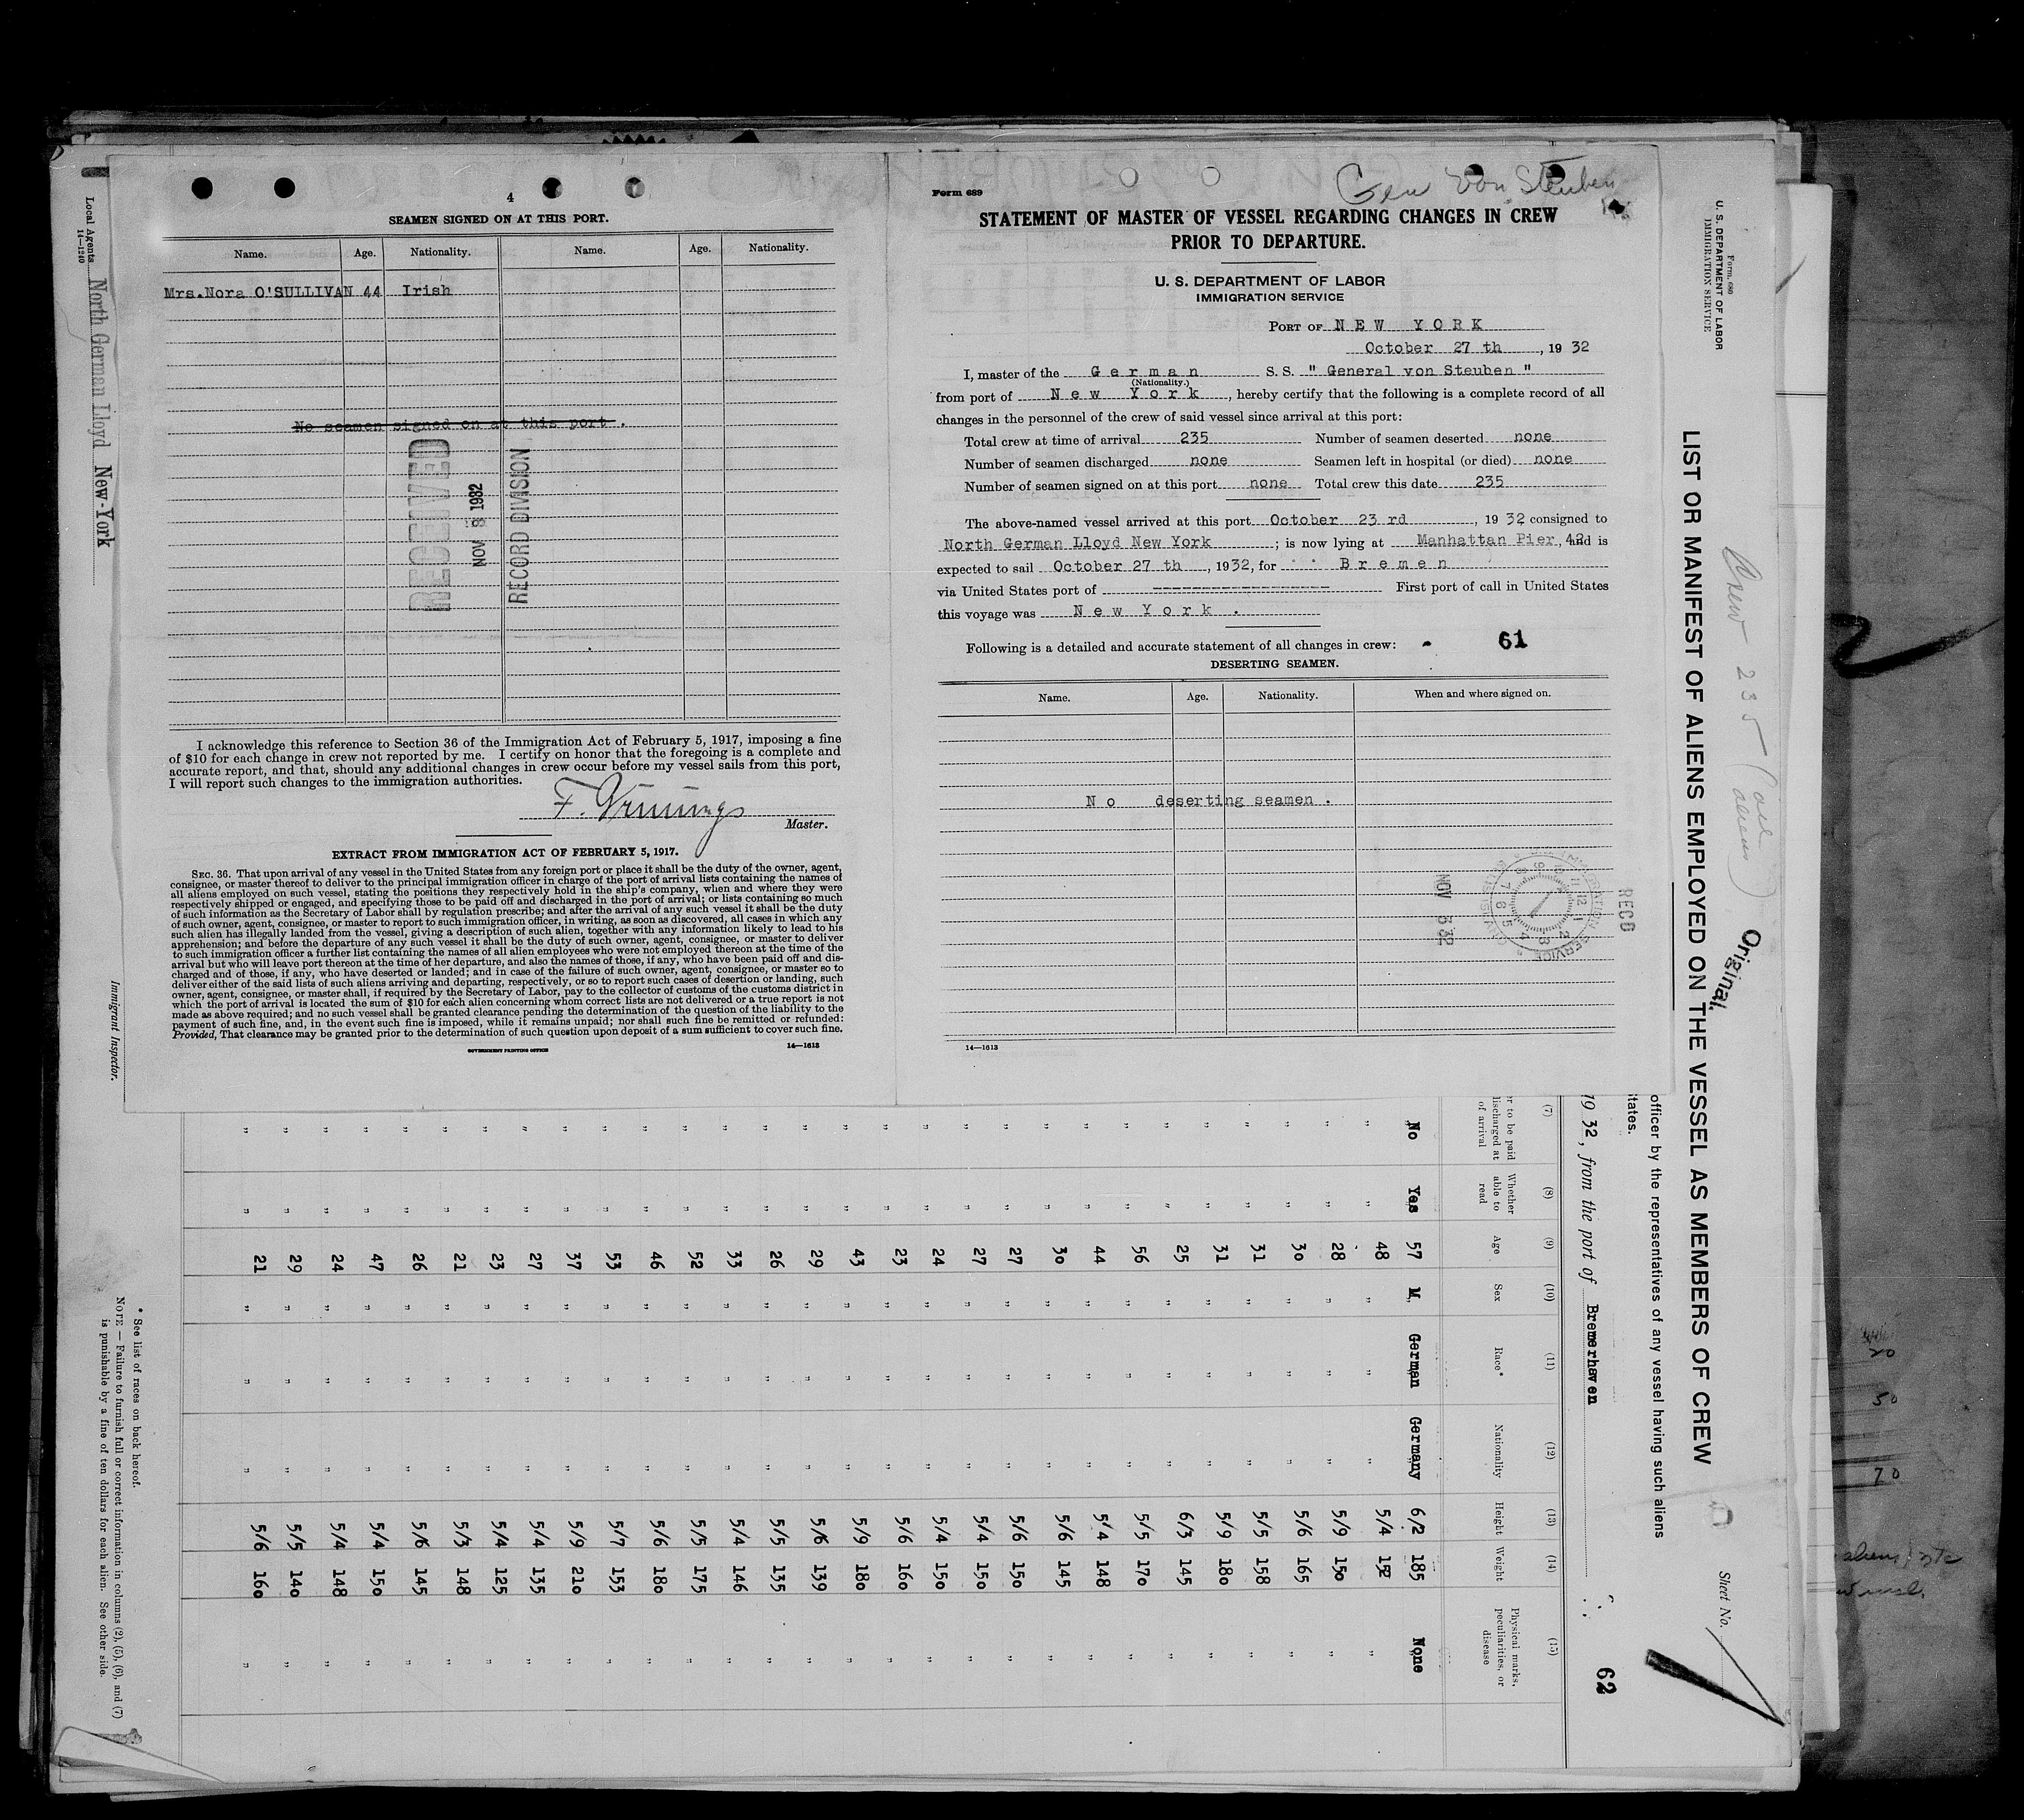 4
SEAMEN SIGNED ON AT THIS PORT.
Name. Age. Nationality. Name. Age. Nationality.
Mrs.Nora O'SULLIVAN 44 Irish
No seamen signed on at this port .
RECEIVED
NOV 8 1932
RECORD DIVISION
I acknowledge this reference to Section 36 of the Immigration Act of February 5, 1917, imposing a fine
of $10 for each change in crew not reported by me. I certify on honor that the foregoing is a complete and
accurate report, and that, should any additional changes in crew occur before my vessel sails from this port,
I will report such changes to the immigration authorities.
Master.
EXTRACT FROM IMMIGRATION ACT OF FEBRUARY 5, 1917.
SEC. 36. That upon arrival of any vessel in the United States from any foreign port or place it shall be the duty of the owner, agent,
consignee, or master thereof to deliver to the principal immigration officer in charge of the port of arrival lists containing the names of
all aliens employed on such vessel, stating the positions they respectively hold in the ship's company, when and where they were
respectively shipped or engaged, and specifying those to be paid off and discharged in the port of arrival; or lists containing so much
of such information as the Secretary of Labor shall by regulation prescribe; and after the arrival of any such vessel it shall be the duty
of such owner, agent, consignee, or master to report to such immigration officer, in writing, as soon as discovered, all cases in which any
such alien has illegally landed from the vessel, giving a description of such alien, together with any information likely to lead to his
apprehension; and before the departure of any such vessel it shall be the duty of such owner, agent, consignee, or master to deliver
to such immigration officer a further list containing the names of all alien employees who were not employed thereon at the time of the
arrival but who will leave port thereon at the time of her departure, and also the names of those, if any, who have been paid off and dis-
charged and of those, if any, who have deserted or landed; and in case of the failure of such owner, agent, consignee, or master so to
deliver either of the said lists of such aliens arriving and departing, respectively, or so to report such cases of desertion or landing, such
owner, agent, consignee, or master shall, if required by the Secretary of Labor, pay to the collector of customs of the customs district in
which the port of arrival is located the sum of $10 for each alien concerning whom correct lists are not delivered or a true report is not
made as above required; and no such vessel shall be granted clearance pending the determination of the question of the liability to the
payment of such fine, and, in the event such fine is imposed, while it remains unpaid; nor shall such fine be remitted or refunded:
Provided, That clearance may be granted prior to the determination of such question upon deposit of a sum sufficient to cover such fine.
GOVERNMENT PRINTING OFFICE 14—1613
Form 689
Gen Von Steuben
STATEMENT OF MASTER OF VESSEL REGARDING CHANGES IN CREW
PRIOR TO DEPARTURE.
U. S. DEPARTMENT OF LABOR
IMMIGRATION SERVICE
PORT OF NEW YORK
October 27 th , 19 32
I, master of the German S. S. " General von Steuben "
(Nationality.)
from port of New York , hereby certify that the following is a complete record of all
changes in the personnel of the crew of said vessel since arrival at this port:
Total crew at time of arrival 235 Number of seamen deserted none
Number of seamen discharged none Seamen left in hospital (or died) none
Number of seamen signed on at this port none Total crew this date 235
The above-named vessel arrived at this port October 23 rd , 19 32 consigned to
North German Lloyd New York ; is now lying at Manhattan Pier 42, and is
expected to sail October 27 th , 1932, for Bremen
via United States port of ---------------- First port of call in United States
this voyage was New York .
Following is a detailed and accurate statement of all changes in crew: 61
DESERTING SEAMEN.
Name. Age. Nationality. When and where signed on.
No deserting seamen .
NOV 3 32
RECD
14—1613
Local Agents North German Lloyd New-York
14—1240
Immigrant Inspector.
Form 680
U. S. DEPARTMENT OF LABOR
IMMIGRATION SERVICE
Crew 235
Original
LIST OR MANIFEST OF ALIENS EMPLOYED ON THE VESSEL AS MEMBERS OF CREW
Sheet No.
officer by the representatives of any vessel having such aliens
States.
19 32, from the port of Bremerhaven
62
(7) (8) (9) (10) (11) (12) (13) (14) (15)
er to be paid discharged at of arrival Whether able to read Age Sex Race* Nationality Height Weight Physical marks, peculiarities, or disease
No Yes 57 M German Germany 6/2 185 None
" " 48 " " " 5/4 152 "
" " 28 " " " 5/9 150 "
" " 30 " " " 5/6 165 "
" " 31 " " " 5/5 158 "
" " 31 " " " 5/9 180 "
" " 25 " " " 6/3 145 "
" " 56 " " " 5/5 170 "
" " 44 " " " 5/4 148 "
" " 30 " " " 5/6 145 "
" " 27 " " " 5/6 150 "
" " 27 " " " 5/4 150 "
" " 24 " " " 5/4 150 "
" " 23 " " " 5/6 160 "
" " 43 " " " 5/9 180 "
" " 29 " " " 5/6 139 "
" " 26 " " " 5/5 135 "
" " 33 " " " 5/4 146 "
" " 52 " " " 5/5 175 "
" " 46 " " " 5/6 180 "
" " 53 " " " 5/7 153 "
" " 37 " " " 5/9 210 "
" " 27 " " " 5/4 135 "
" " 23 " " " 5/4 125 "
" " 21 " " " 5/3 148 "
" " 26 " " " 5/6 145 "
" " 47 " " " 5/4 150 "
" " 24 " " " 5/4 148 "
" " 29 " " " 5/5 140 "
" " 21 " " " 5/6 160 "
* See list of races on back hereof.
NOTE — Failure to furnish full or correct information in columns (2), (5), (6), and (7)
is punishable by a fine of ten dollars for each alien. See other side.
20
50
70